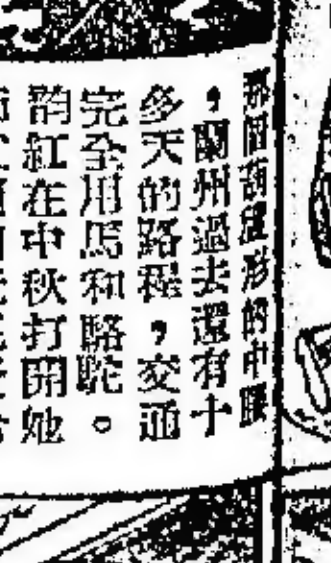 那個葫蘆形的中腰
，蘭州過去還有十
多天的路程，交通
完全用馬和駱駝。
韵紅在中秋打開她